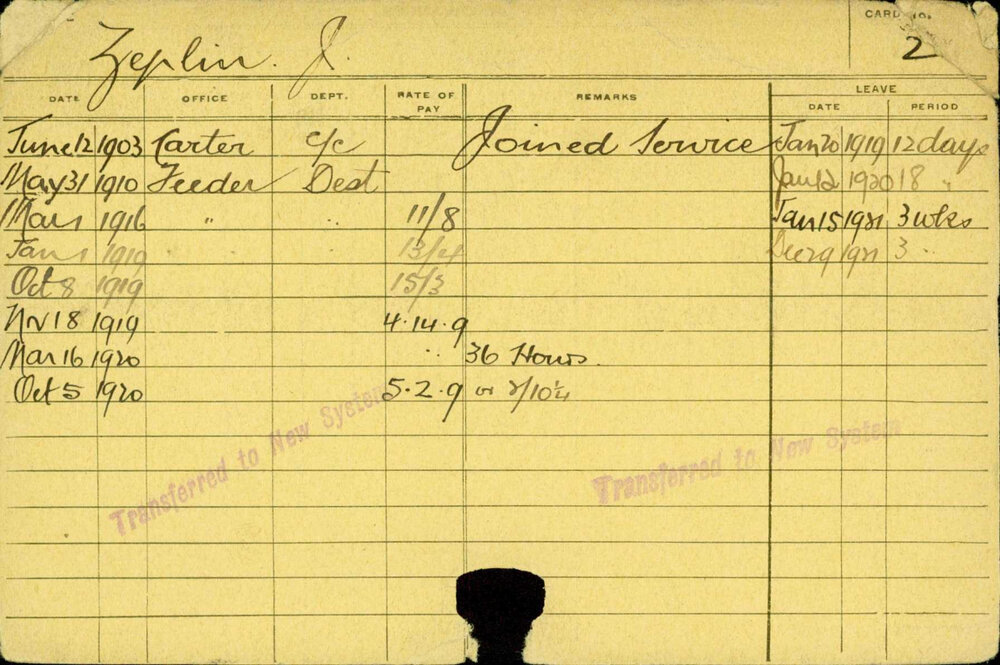 CARD No.
2
Zeplin. J.
DATE OFFICE DEPT. RATE OF PAY REMARKS LEAVE
DATE PERIOD
June 12 1903 Carter c/c Joined Service Jan 20 1919 12 days
May 31 1910 Feeder Dest Jan 12 1920 18 "
Mar 1 1916 " " 11/8 Jan 15 1921 3 wks
Jan 1 1919 13/4 Dec 29 1921 3 "
Oct 8 1919 15/3
Nv 18 1919 4.14.9
Mar 16 1920 " 36 Hours.
Oct 5 1920 5.2.9 or 2/10¼
Transferred to New System
Transferred to New System